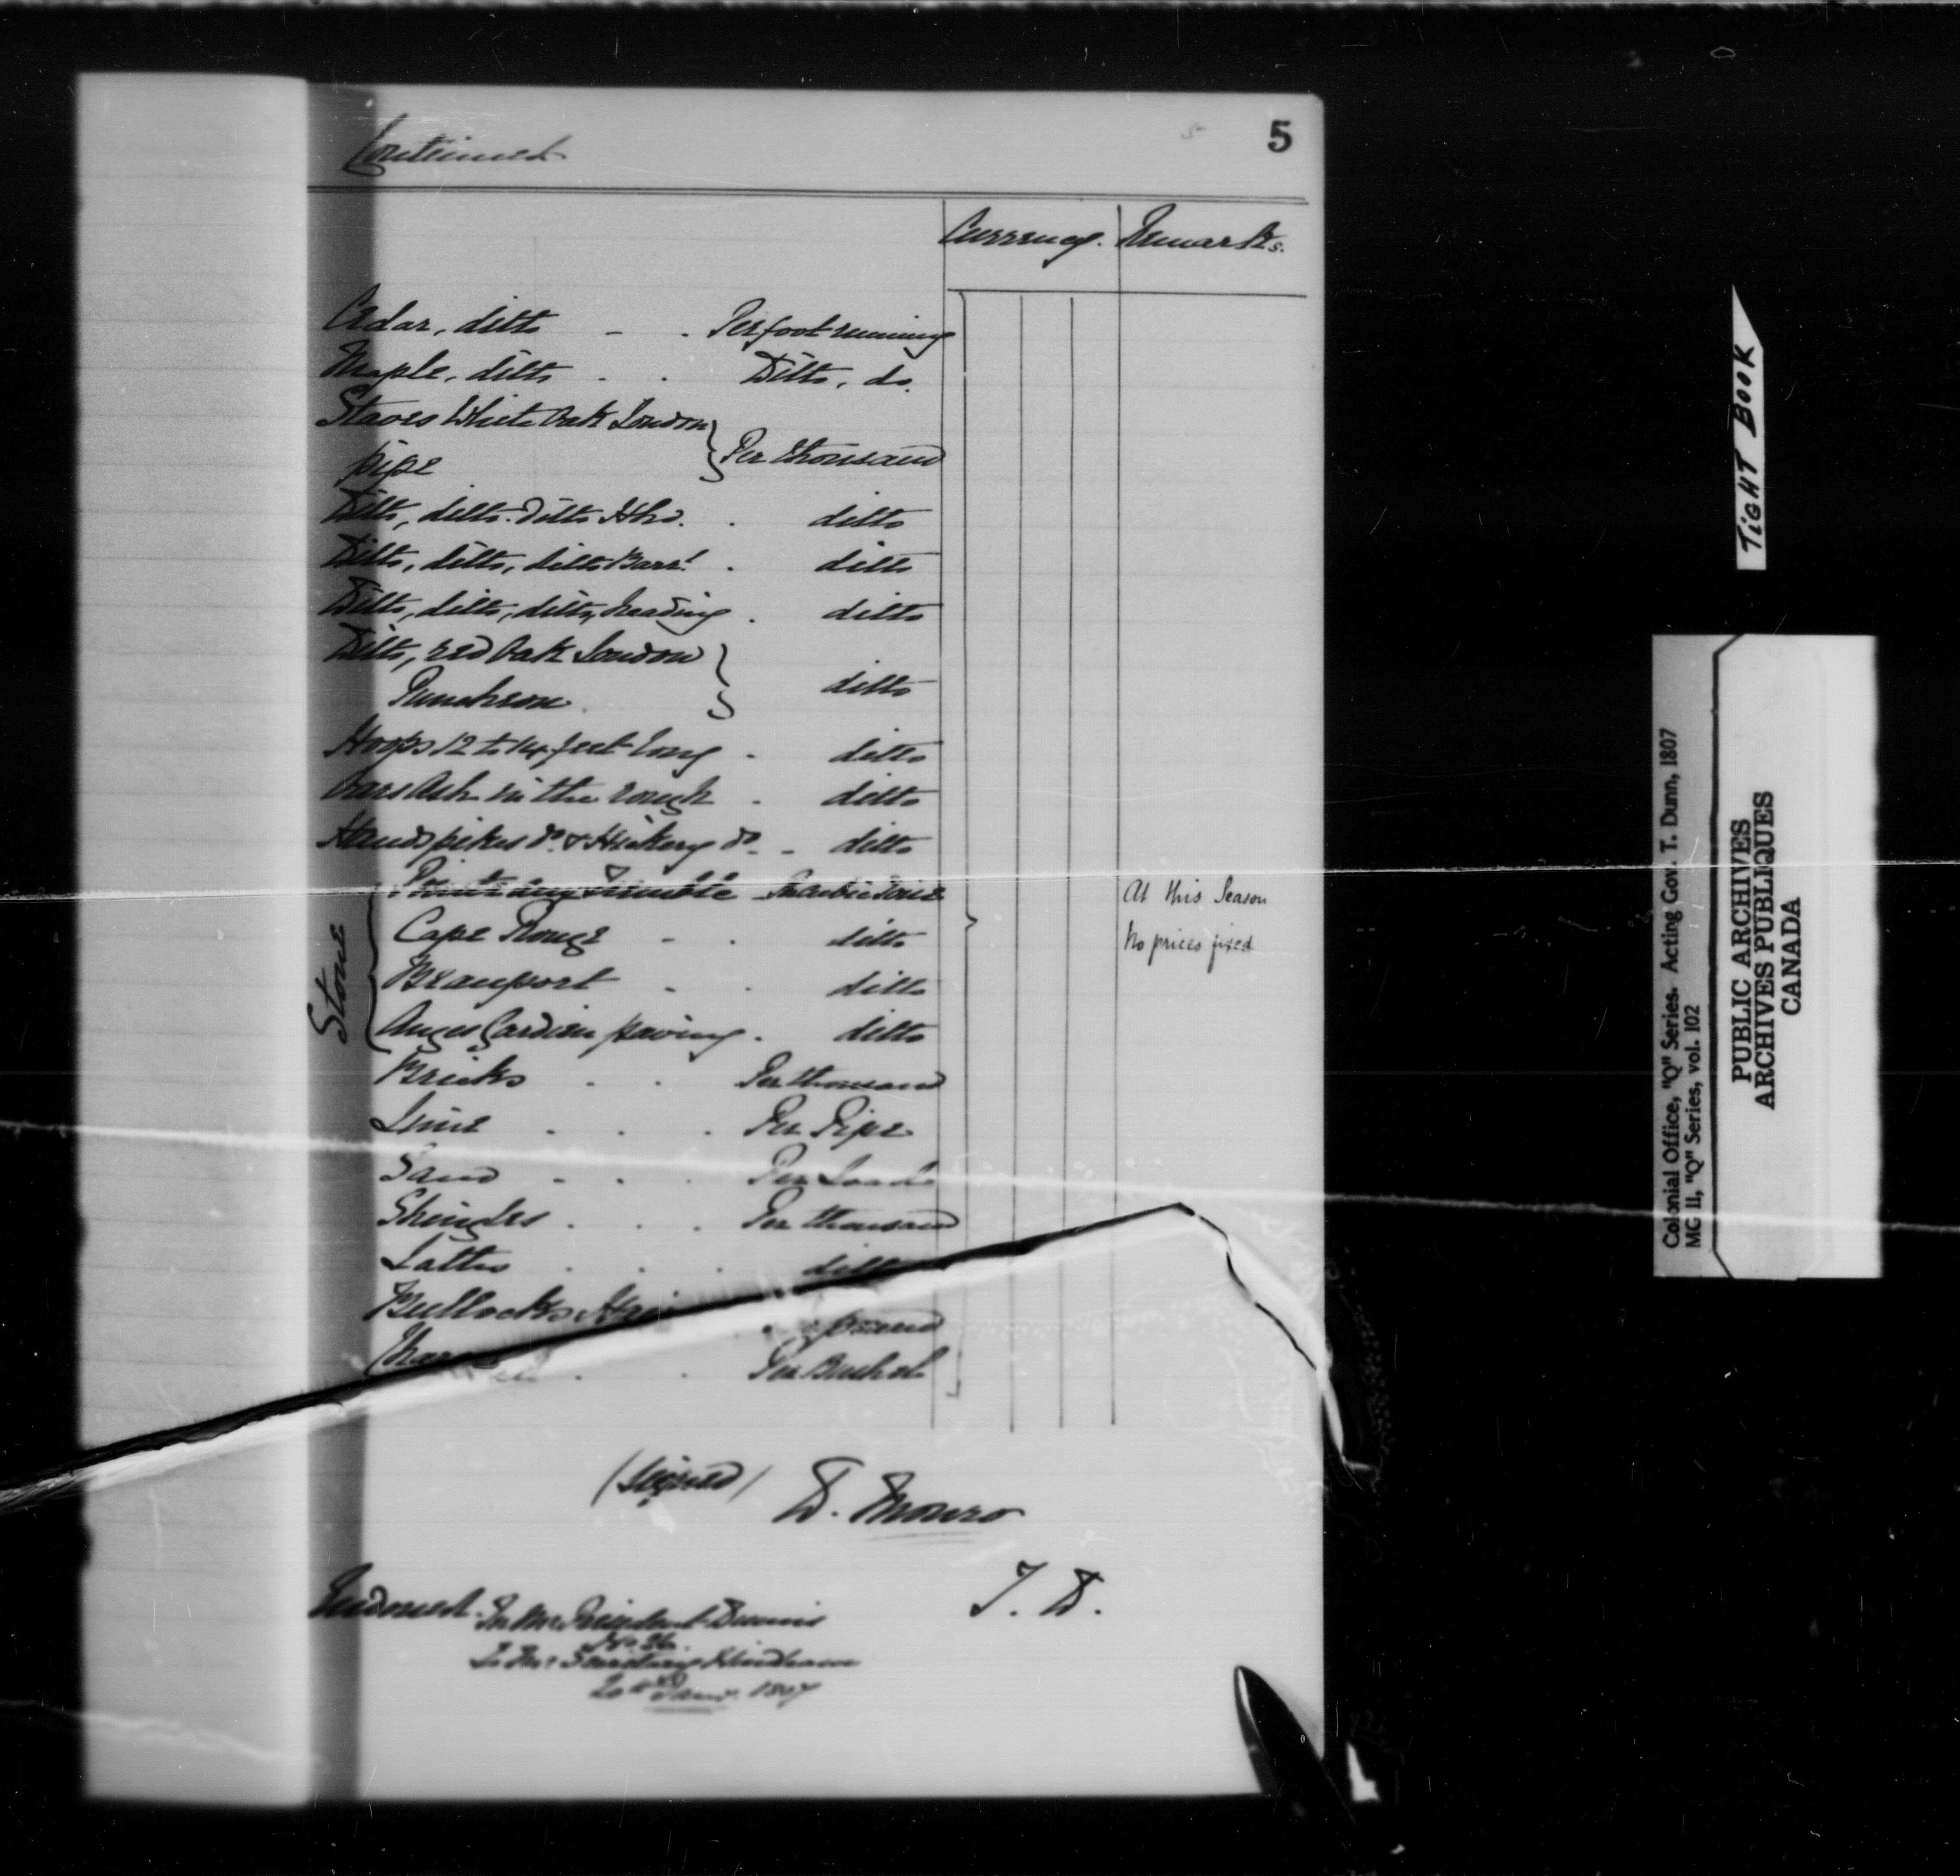 5
Continued
Currency. Remarks.
Cedar, ditto - . Per foot running
Maple, ditto . . Ditto, do.
Staves White Oak London
pipe } Per thousand
Ditto, ditto. Ditto Hhd. . ditto
Ditto, ditto, ditto Barrl . ditto
Ditto, ditto, ditto, heading . ditto
Ditto, red Oak London
Puncheon } ditto
Hoops 12 to 14 feet long - ditto
Oars Ash in the rough . ditto
Handspikes do. & Hickory do. - ditto
Stone
Pointe aux Tremble
Cape Rouge - . ditto
Beauport - . ditto
Anges Gardien paving . ditto
At this Season
No prices fixed
Bricks . . Per thousand
Lime . . . Per Pipe
Sand - . . Per Load
Shingles . . . Per thousand
Laths . . . ditto
Bullocks pound
Per Bushel
(Signed) D. Monro
T. D.
Endorsed. In Mr. President Dunn's
No. 26.
To Mr. Secretary Windham
20th Jany. 1807
TIGHT BOOK
Colonial Office, "Q" Series. Acting Gov. T. Dunn, 1807
MG 11, "Q" Series, vol. 102
PUBLIC ARCHIVES
ARCHIVES PUBLIQUES
CANADA